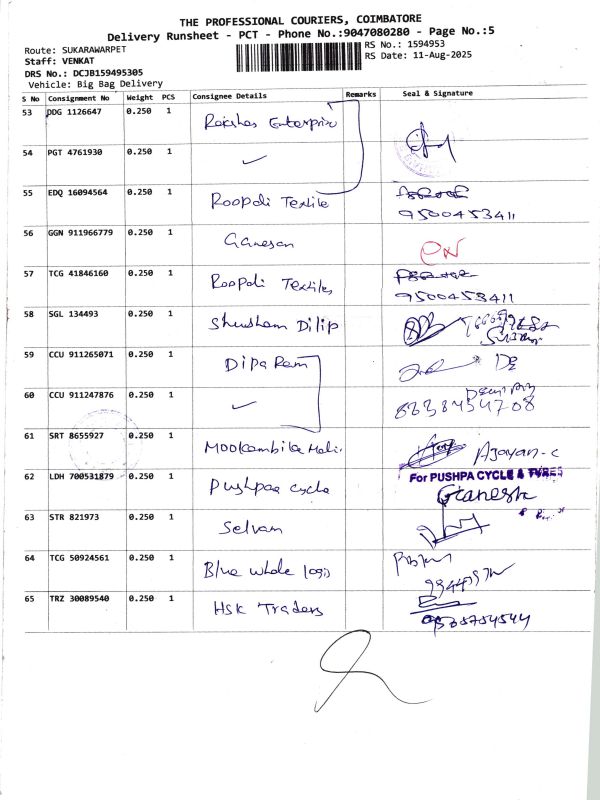 THE PROFESSIONAL COURIERS, COIMBATORE
Delivery Runsheet - PCT - Phone No.:9047080280 - Page No.:5
Route: SUKARAWARPET
RS No.: 1594953
Staff: VENKAT
RS Date: 11-Aug-2025
DRS No.: DCJB159495305
Vehicle: Big Bag Delivery
S No Consignment No Weight PCS Consignee Details Remarks Seal & Signature
53 DDG 1126647 0.250 1 Enterprise
54 PGT 4761930 0.250 1 ✓
55 EDQ 16094564 0.250 1 Roopali Textile
9500453411
56 GGN 911966779 0.250 1 Ganesan
57 TCG 41846160 0.250 1 Roopali Textiles
9500453411
58 SGL 134493 0.250 1 Dilip
59 CCU 911265071 0.250 1 Dipa Ram
60 CCU 911247876 0.250 1 ✓
61 SRT 8655927 0.250 1 Mookambika Ajayan-c
62 LDH 700531879 0.250 1 Pushpaa cycle For PUSHPA CYCLE & TYRES
Ganesh
63 STR 821973 0.250 1 Selvam
64 TCG 50924561 0.250 1 Blue whale logis
65 TRZ 30089540 0.250 1 HSK Traders